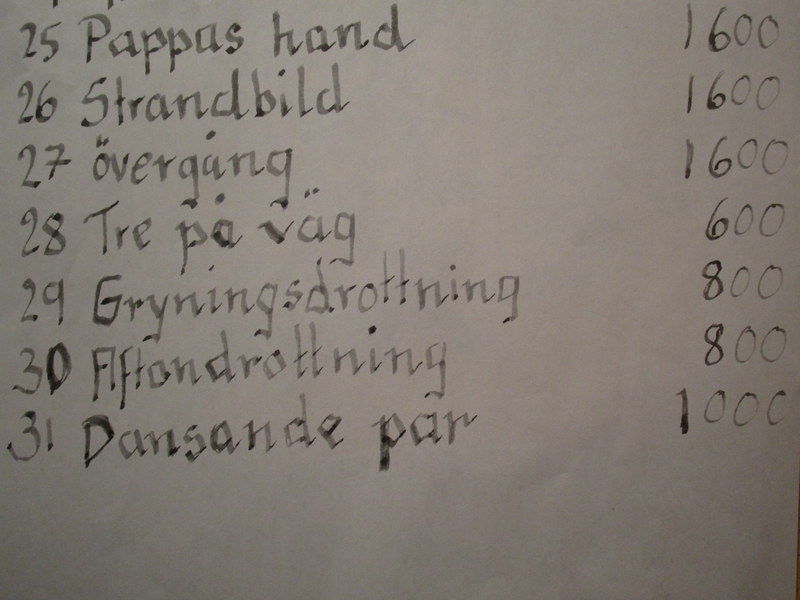 25 Pappas hand 1600
26 Strandbild 1600
27 övergång 1600
28 Tre på väg 600
29 Gryningsdrottning 800
30 Aftondrottning 800
31 Dansande par 1000